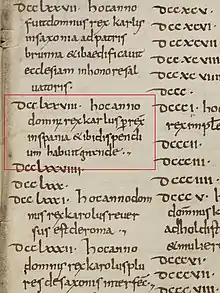 DCCLXXVII. hoc anno
fuit domnus rex karlus
in saxonia ad patris
brunna & ibi aedificavit
ecclesiam in honore sal
uatoris.
DCCLXXVIII. hoc anno
domnus rex karlus perrex
in spania & ibi dispendi
um habuit grande.
DCCLXXVIIII.
DCCLXXX.
DCCLXXXI hoc anno dom
nus rex karolus reuer
sus est de roma.
DCCLXXXII. hoc anno
domnus rex karolus plu
res de saxonis interfec
DCCXCV.
DCCXCVI
DCCXCVII
DCCXCVIII
DCCC
DCCCI. ho
DCCCII.
DCCCIII.
DCCCIIII
DCCCV. h
DCCCVI
DCCCVII
DCCCVIII